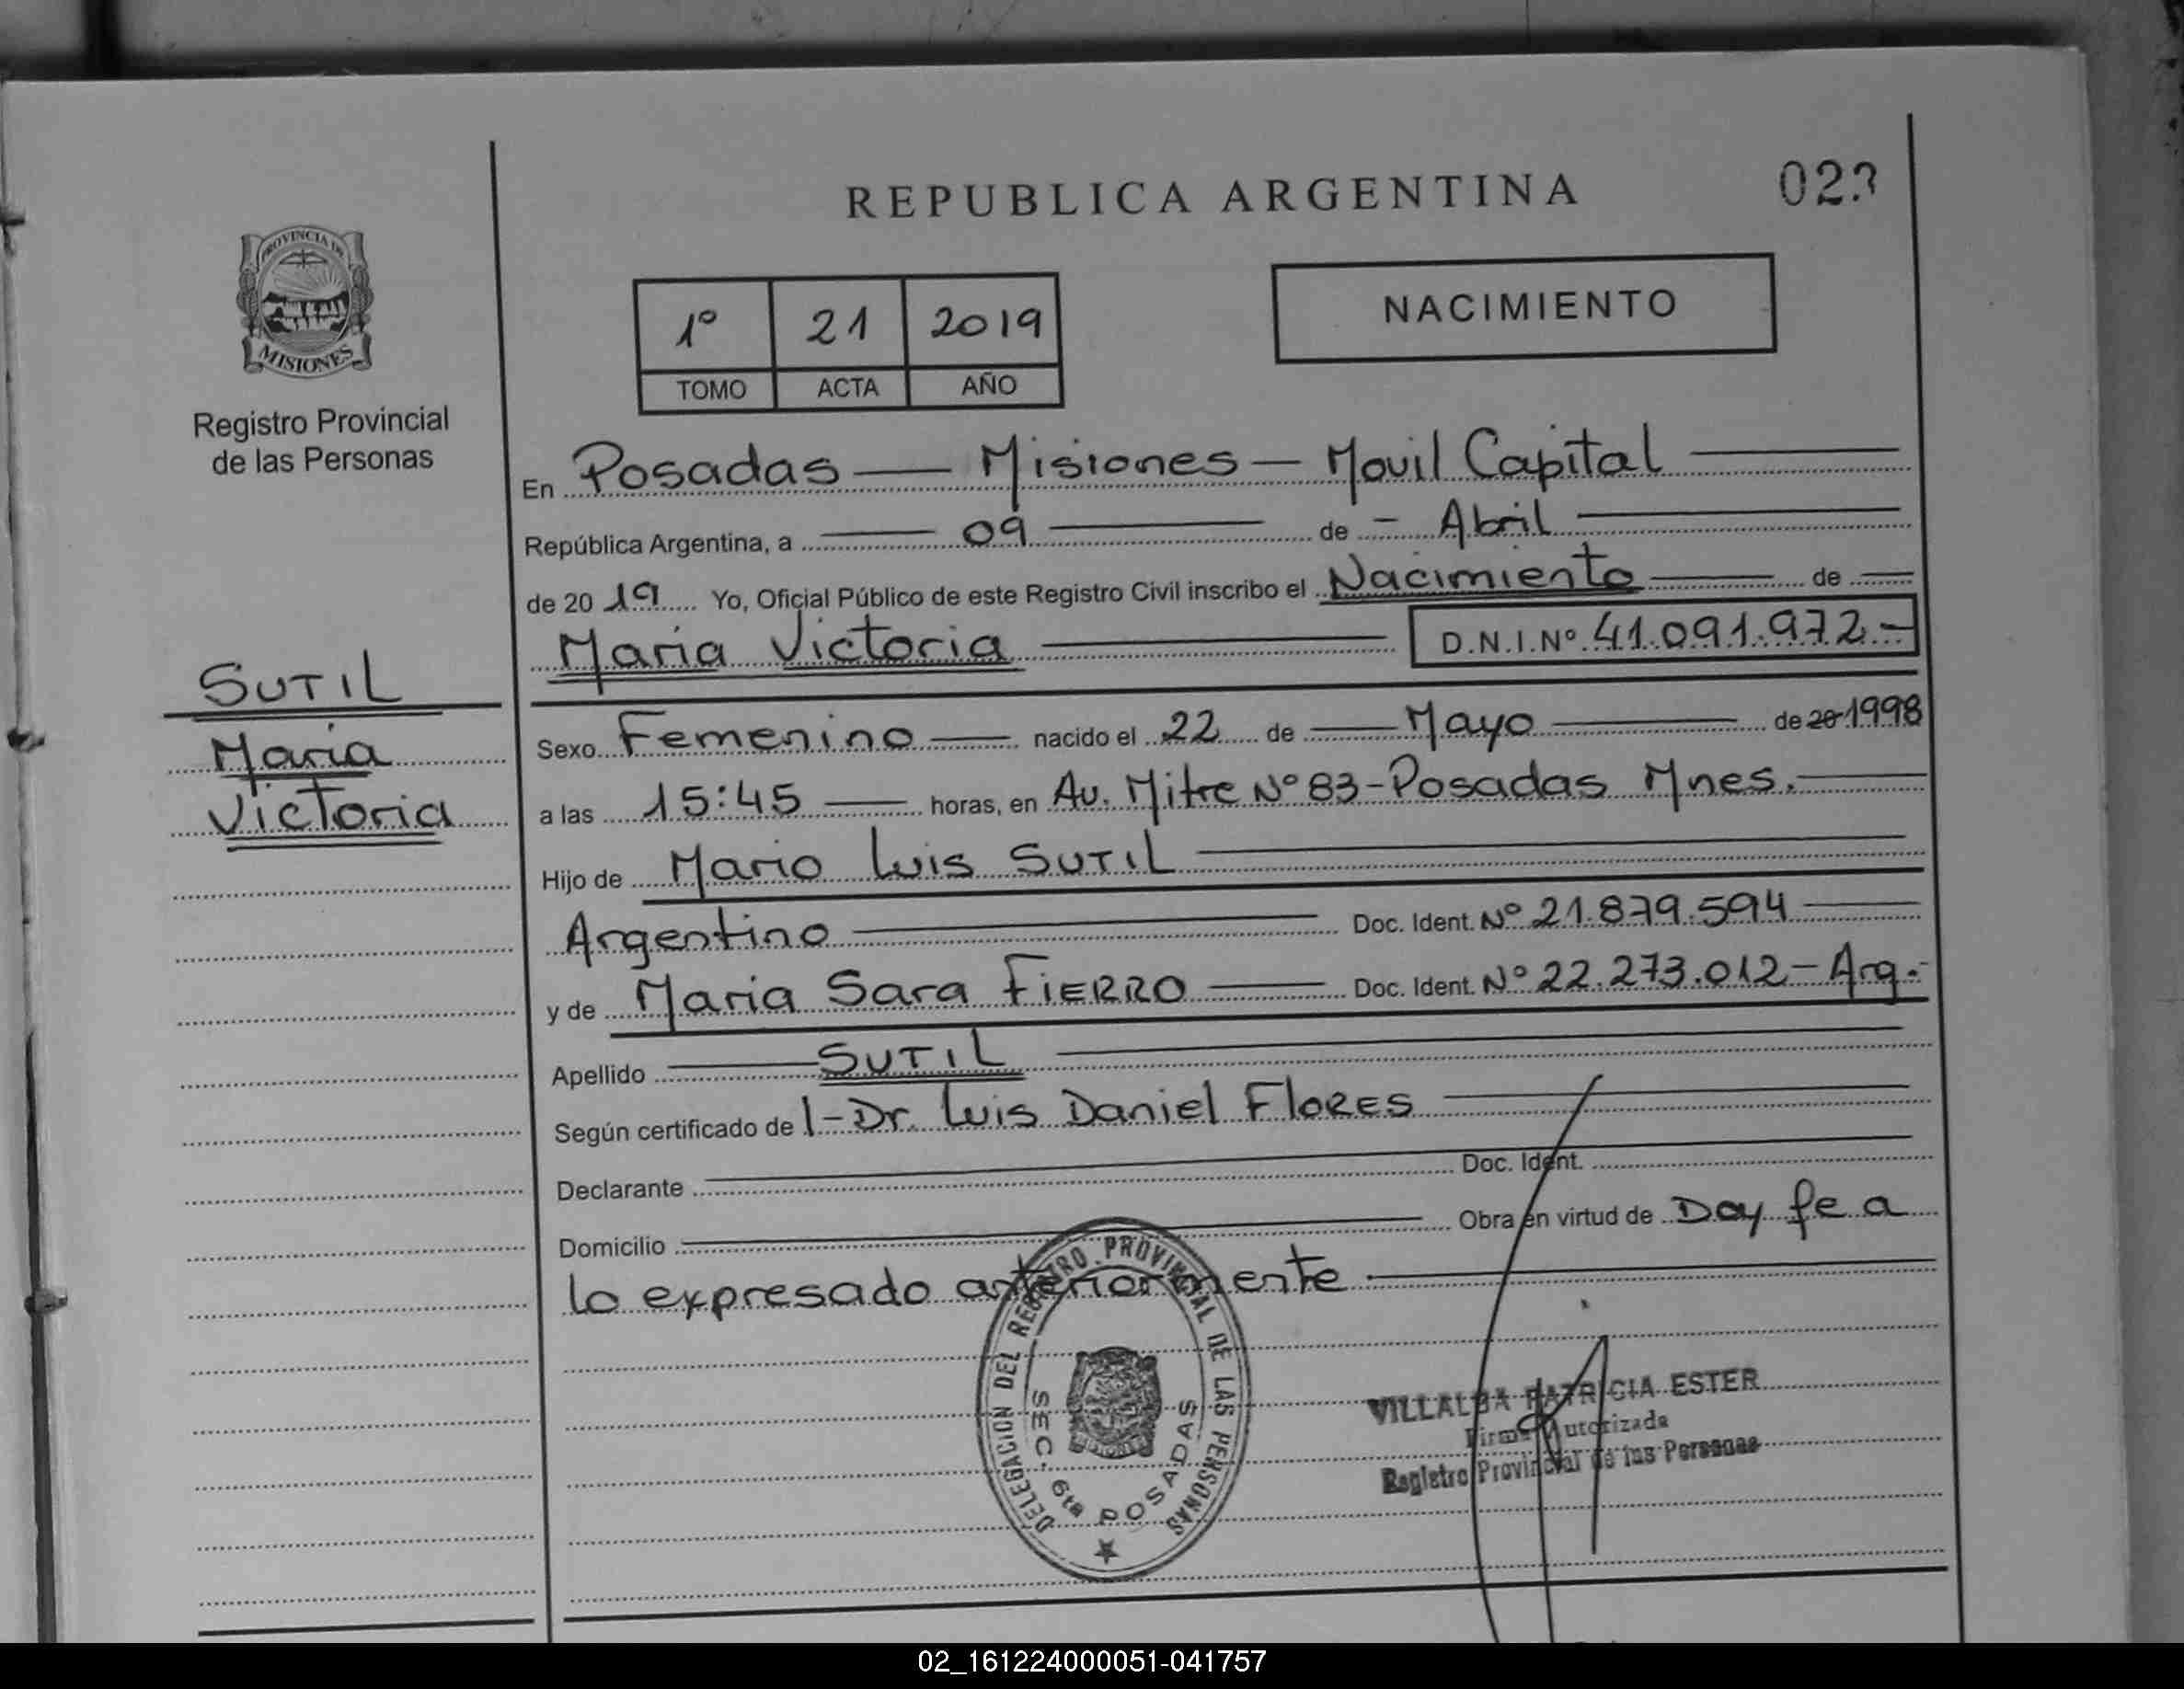 REPUBLICA ARGENTINA
023
PROVINCIA DE
MISIONES
Registro Provincial
de las Personas
1º 21 2019
TOMO ACTA AÑO
NACIMIENTO
En Posadas — Misiones — Movil Capital
República Argentina, a 09 de Abril
de 2019 Yo, Oficial Público de este Registro Civil inscribo el Nacimiento de
Maria Victoria D.N.I.Nº 41.091.972.-
SUTIL
Maria
Victoria
Sexo Femenino nacido el 22 de Mayo de 20 1998
a las 15:45 horas, en Av. Mitre Nº 83-Posadas Mnes.
Hijo de Mario Luis SUTIL
Argentino Doc. Ident. Nº 21.879.594
y de Maria Sara FIERRO Doc. Ident. Nº 22.273.012-Arg.-
Apellido SUTIL
Según certificado de l-Dr. Luis Daniel FLORES
Declarante Doc. Ident.
Domicilio Obra en virtud de Doy fe a
lo expresado anteriormente
DELEGACION DEL REGISTRO PROVINCIAL DE LAS PERSONAS
SEC. POSADAS
VILLALBA PATRICIA ESTER
Firma Autorizada
Registro Provincial de las Personas
02_161224000051-041757